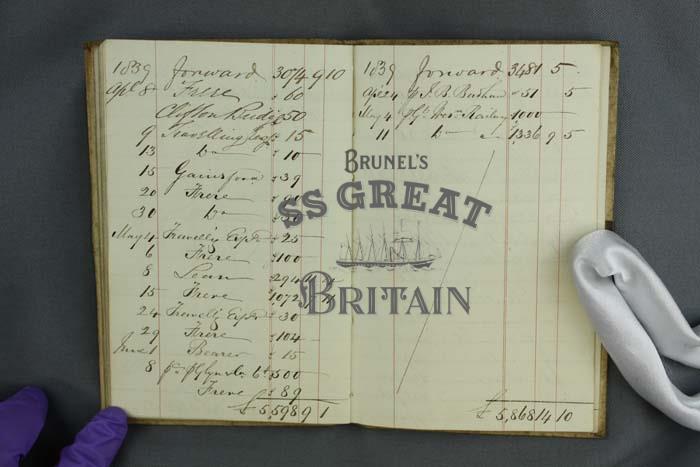 1839 forward 3074 9 10
Apl 8 Frere " 60
Clifton Bridge 50
9 Travelling " 15
13 Do " 10
15 " 39
20 Frere
30 Do
May 4 Travellg Exps " 25
6 Frere " 100
8 Lean 294
15 Frere 1,072
24 Travellg Exps " 30
29 Frere " 104
June 1 Bearer " 15
8 500
Frere " 89
£ 5,598 9 1
1839 forward 3481 5
Apl 24 J. B. " 51 5
May 4 Gt Wesn Railway 1,000
11 Do 1,336 9 5
£ 5,868 14 10
BRUNEL'S
SS GREAT
BRITAIN